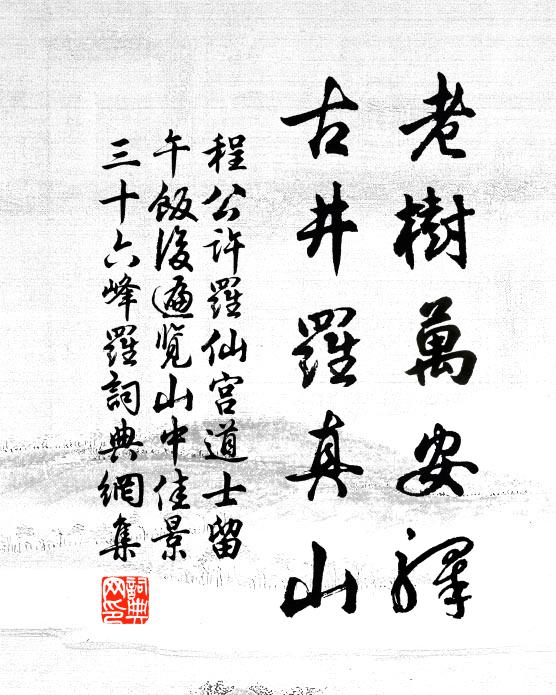 老樹萬安驛
古井羅真山
程公許羅仙宮道士留
午飯後遍覽山中佳景
三十六峰羅詞典網集
詞典
网印